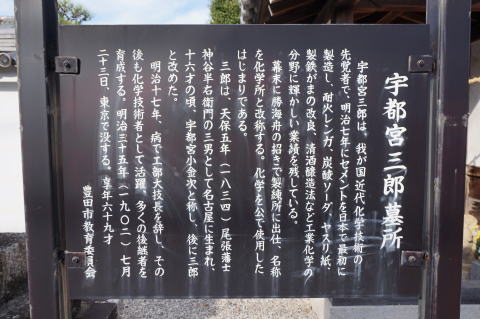 宇都宮三郎墓所
宇都宮三郎は、我が国近代化学技術の
先覚者で、明治七年にセメントを日本で最初に
製造し、耐火レンガ、炭酸ソーダ、ヤスリ紙、
製鉄がまの改良、清酒醸造法など工業化学の
分野に輝かしい業績を残している。
幕末に勝海舟の招きで製練所に出仕、名称
を化学所と改称する。化学を公で使用した
はじまりである。
三郎は、天保五年(一八三四)尾張藩士
神谷半右衛門の三男として名古屋に生まれ、
十六才の頃、宇都宮小金次と称し、後に三郎
と改めた。
明治十七年、病で工部大技長を辞し、その
後も化学技術者として活躍、多くの後継者を
育成する。明治三十五年(一九〇二)七月
二十三日、東京で没する。享年六十九才
豊田市教育委員会